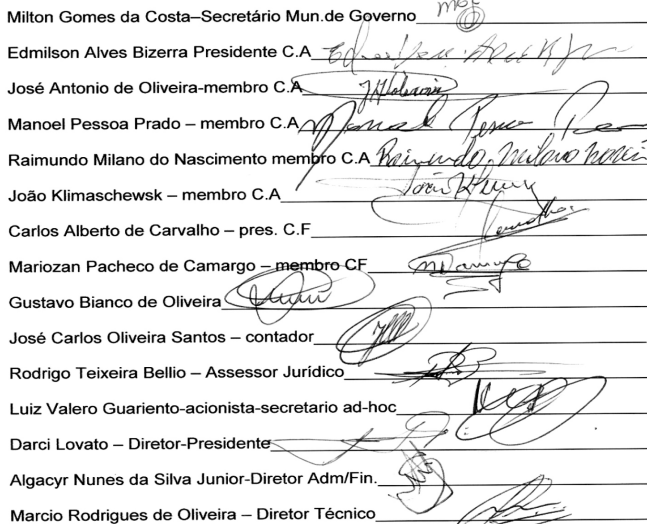 Milton Gomes da Costa–Secretário Mun.de Governo
Edmilson Alves Bizerra Presidente C.A
José Antonio de Oliveira-membro C.A
Manoel Pessoa Prado – membro C.A
Raimundo Milano do Nascimento membro C.A Raimundo Milano
João Klimaschewsk – membro C.A
Carlos Alberto de Carvalho – pres. C.F
Mariozan Pacheco de Camargo – membro CF
Gustavo Bianco de Oliveira
José Carlos Oliveira Santos – contador
Rodrigo Teixeira Bellio – Assessor Jurídico
Luiz Valero Guariento-acionista-secretario ad-hoc
Darci Lovato – Diretor-Presidente
Algacyr Nunes da Silva Junior-Diretor Adm/Fin.
Marcio Rodrigues de Oliveira – Diretor Técnico